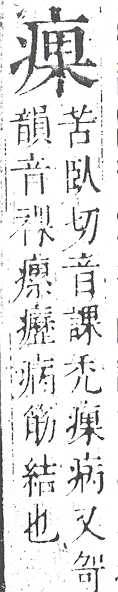 㾧
苦臥切音課禿㾧病又哿
韻音裸瘰癧病筋結也